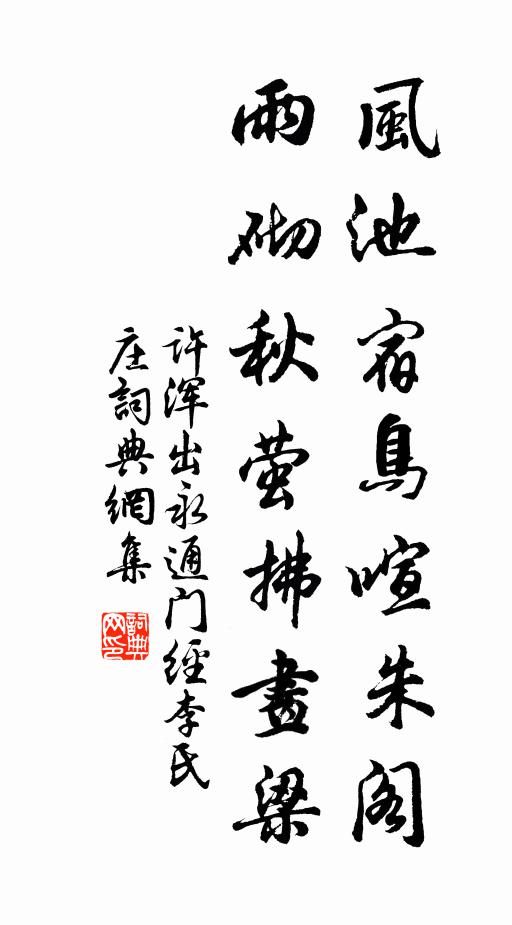 風池宿鳥喧朱阁
雨砌秋萤拂畫梁
许浑出永通门經李氏
庄詞典網集
詞典
网印